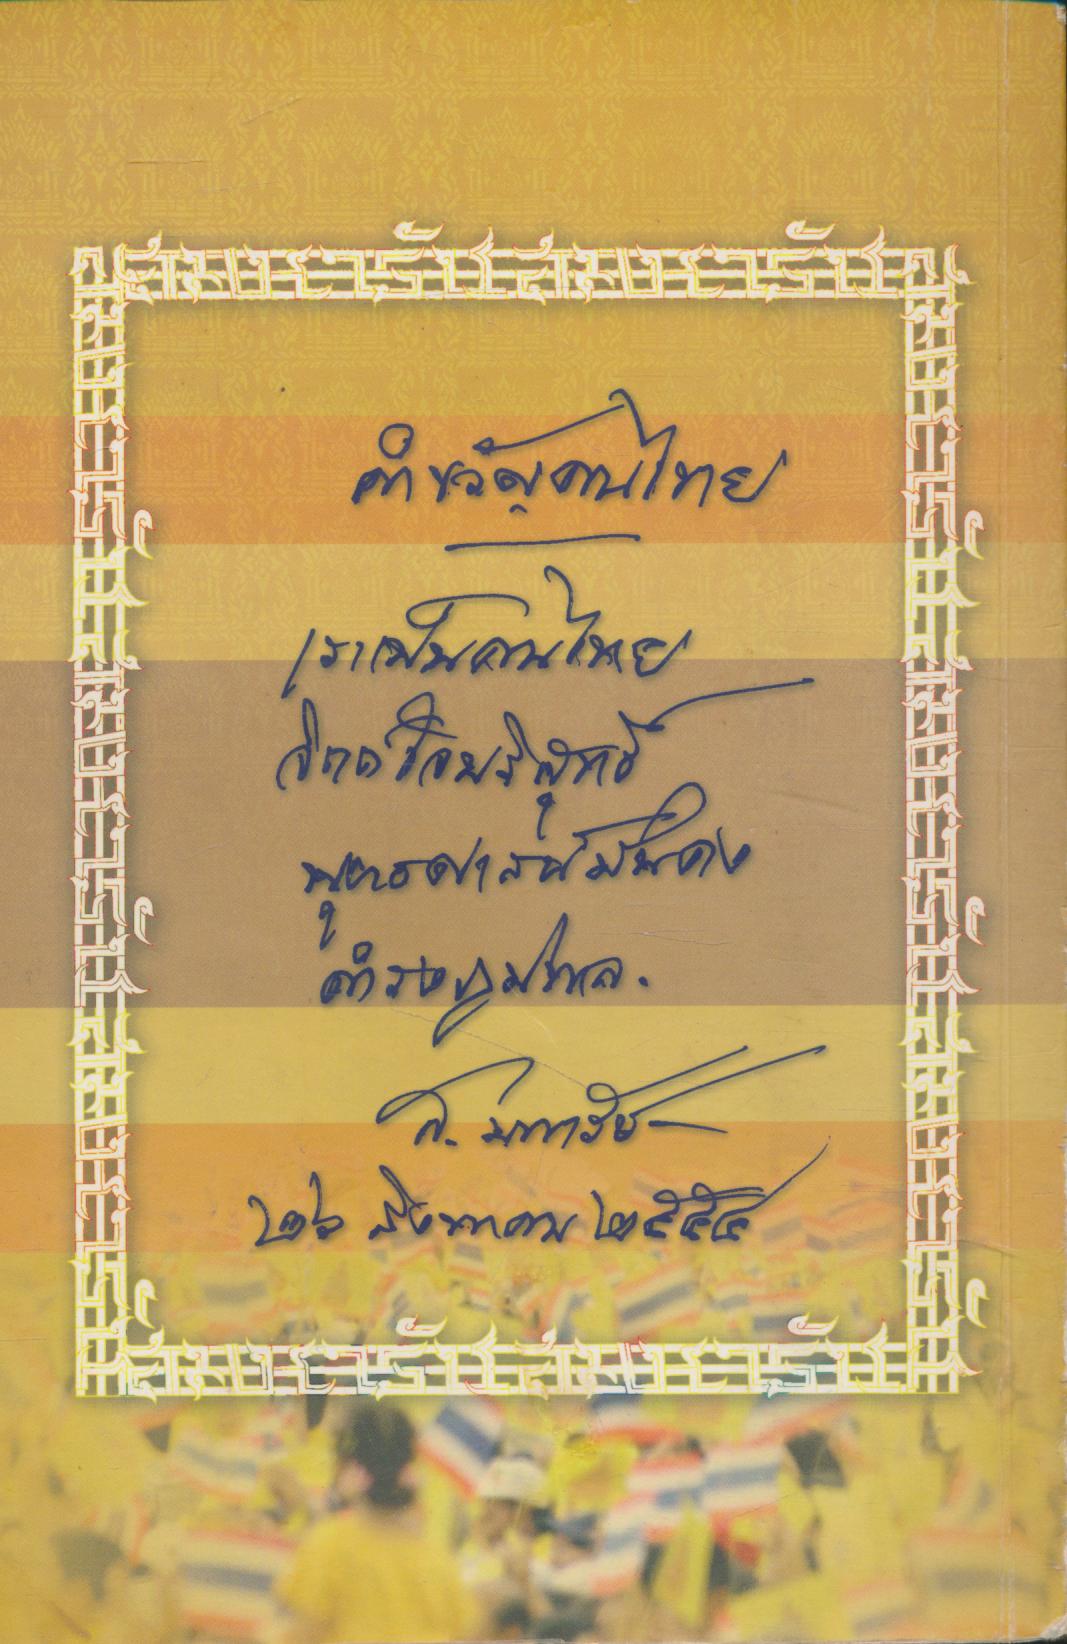 คำขวัญคนไทย
เราเป็นคนไทย
จิตต์ซื่อบริสุทธิ์
พุทธศาสน์มั่นคง
ดำรงภูมิพล.
ส. มหารัช
๒๖ สิงหาคม ๒๕๕๔